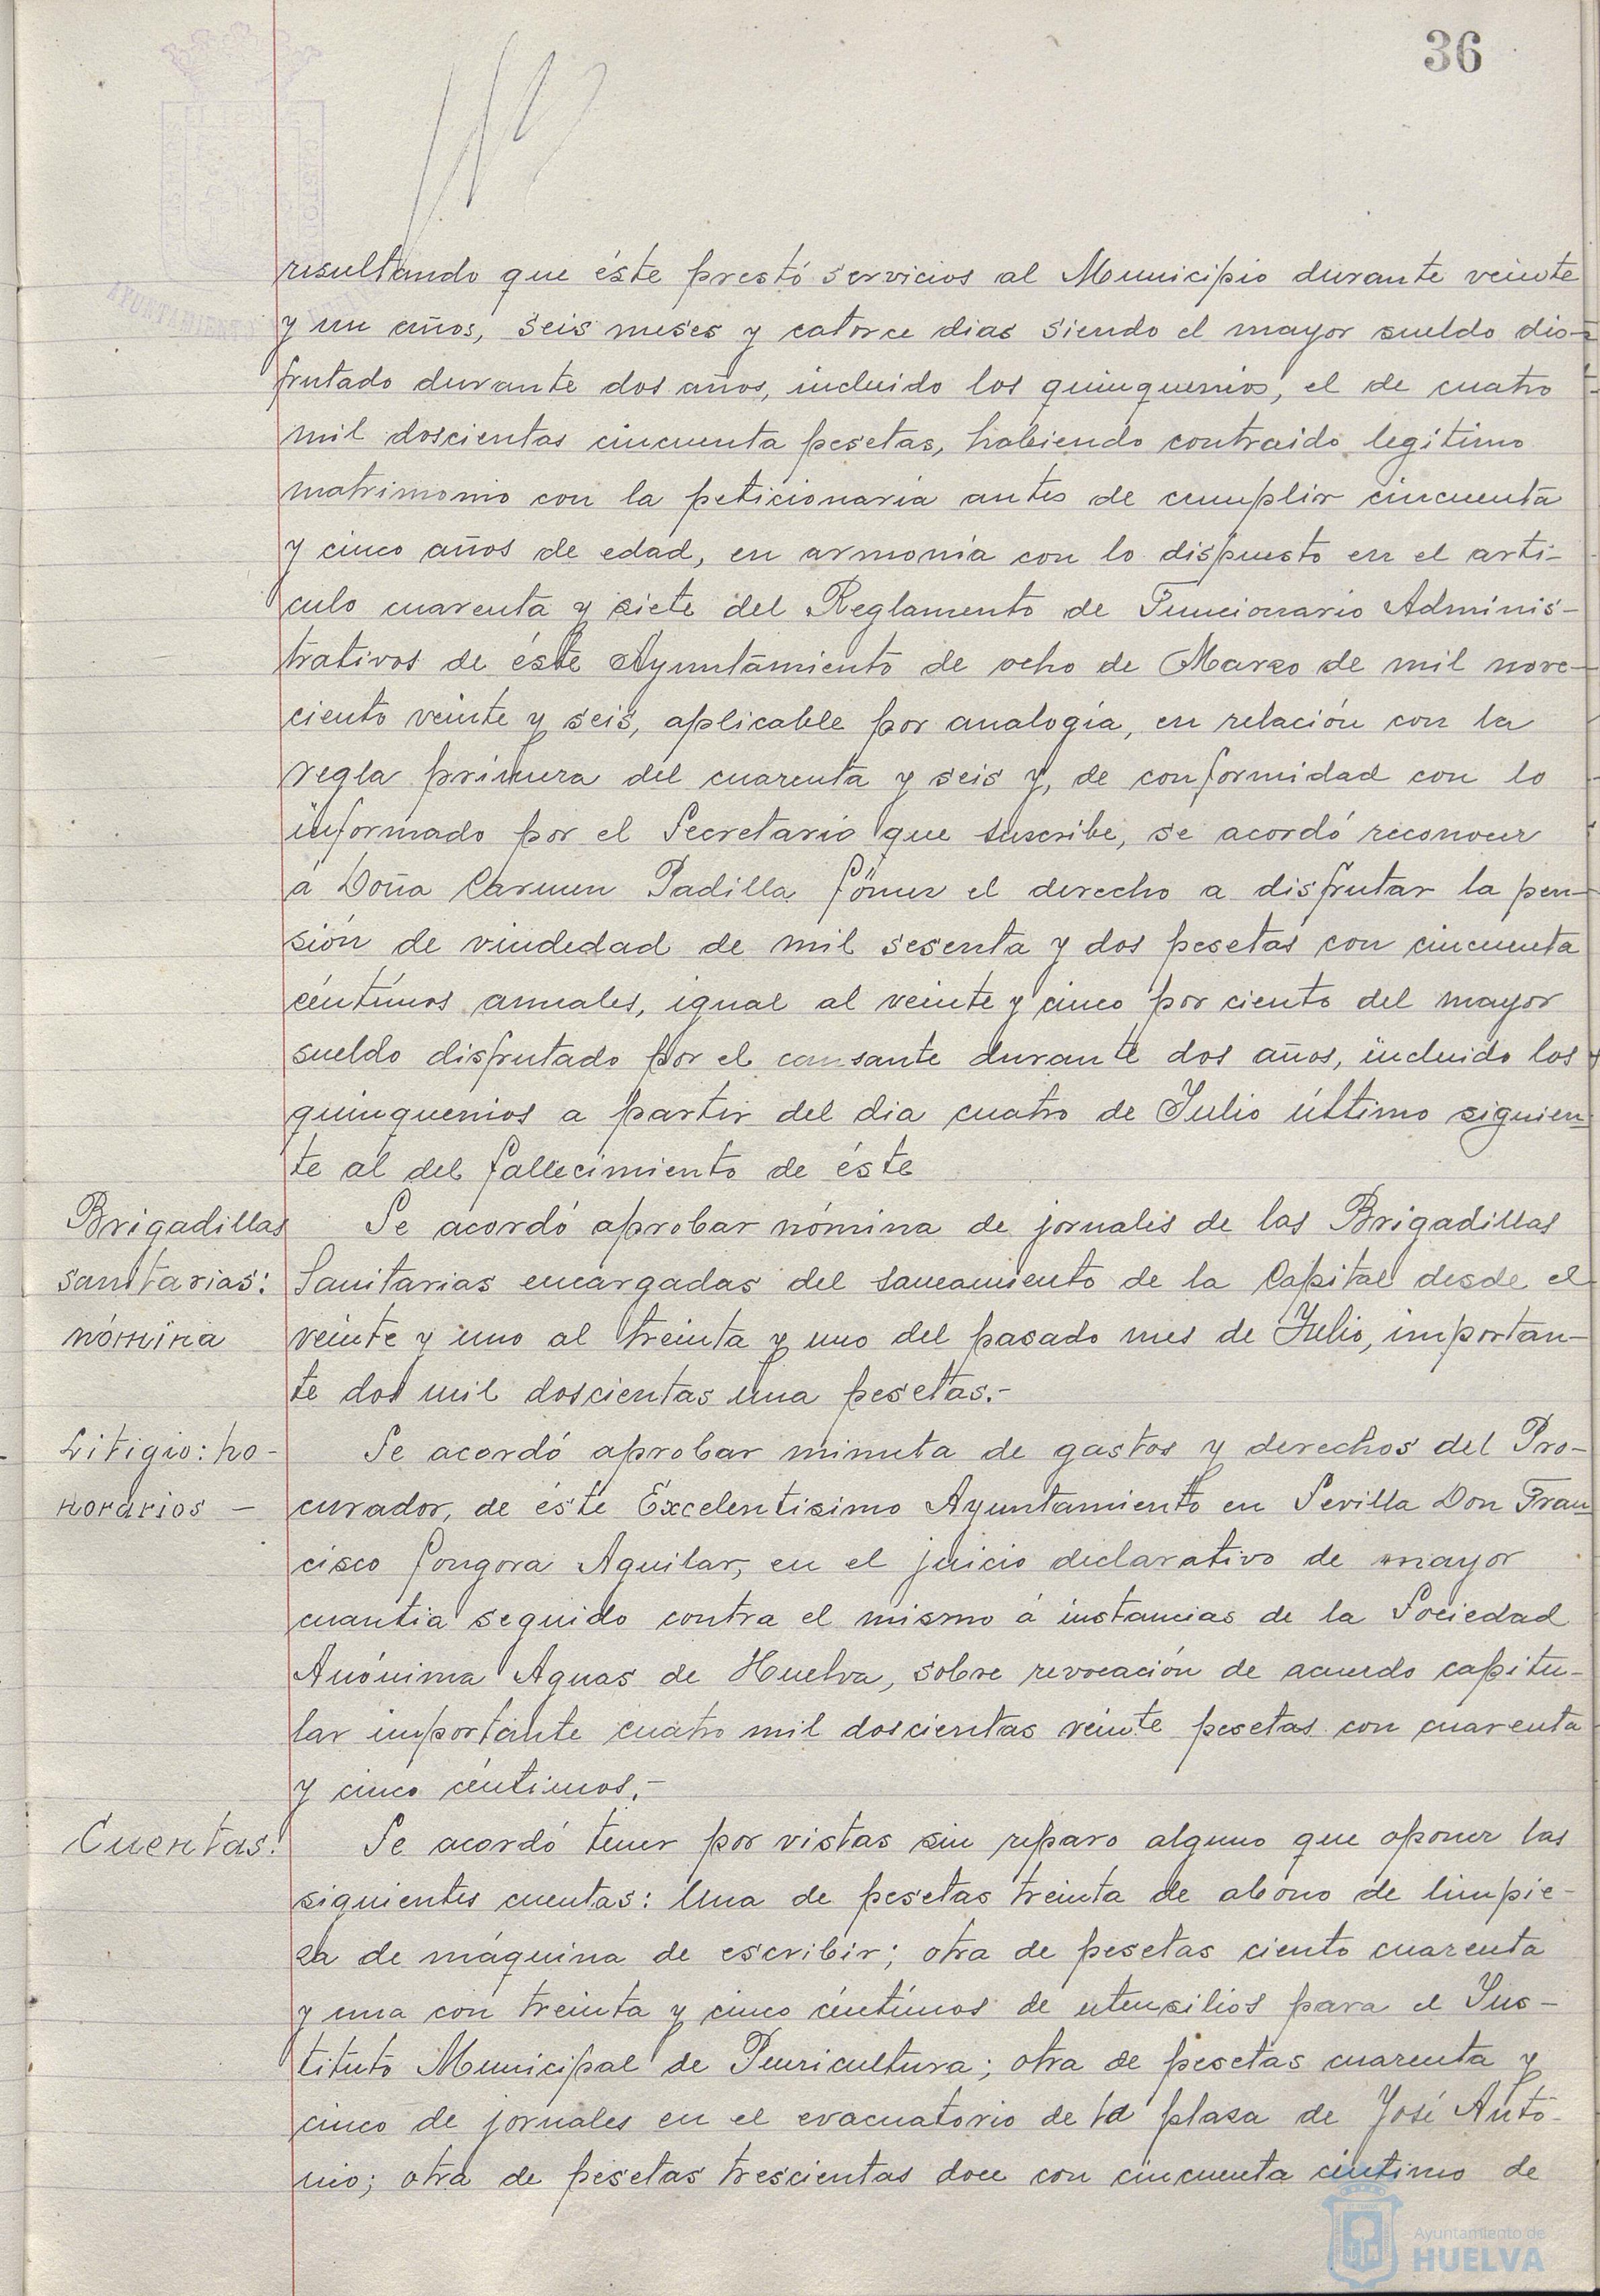 36
resultando que éste prestó servicios al Municipio durante veinte
y un años, seis meses y catorce dias siendo el mayor sueldo dis-
frutado durante dos años, incluido los quinquenios, el de cuatro
mil doscientas cincuenta pesetas, habiendo contraido legitimo
matrimonio con la peticionaria antes de cumplir cincuenta
y cinco años de edad, en armonia con lo dispuesto en el arti-
culo cuarenta y siete del Reglamento de Funcionario Adminis-
trativos de éste Ayuntamiento de ocho de Marzo de mil nove-
ciento veinte y seis, aplicable por analogía, en relación con la
regla primera del cuarenta y seis y, de conformidad con lo
informado por el Secretario que suscribe, se acordó reconocer
a Doña Carmen Padilla el derecho a disfrutar la pen-
sión de viudedad de mil sesenta y dos pesetas con cincuenta
céntimos anuales, igual al veinte y cinco por ciento del mayor
sueldo disfrutado por el causante durante dos años, incluido los
quinquenios a partir del dia cuatro de Julio último siguien-
te al del fallecimiento de éste
Brigadillas
sanitarias:
nómina
Se acordó aprobar nómina de jornales de las Brigadillas
Sanitarias encargadas del saneamiento de la Capital desde el
veinte y uno al treinta y uno del pasado mes de Julio, importan-
te dos mil doscientas una pesetas.-
Litigio: ho-
norarios -
Se acordó aprobar minuta de gastos y derechos del Pro-
curador, de éste Excelentisimo Ayuntamiento en Sevilla Don Fran-
cisco Gongora Aguilar, en el juicio declarativo de mayor
cuantia seguido contra el mismo á instancias de la Sociedad
Anónima Aguas de Huelva, sobre revocación de acuerdo capitu-
lar importante cuatro mil doscientas veinte pesetas con cuarenta
y cinco céntimos.-
Cuentas:
Se acordó tener por vistas sin reparo alguno que oponer las
siguientes cuentas: Una de pesetas treinta de abono de limpie-
za de máquina de escribir; otra de pesetas ciento cuarenta
y una con treinta y cinco céntimos de utensilios para el Ins-
tituto Municipal de Puericultura; otra de pesetas cuarenta y
cinco de jornales en el evacuatorio de la plaza de José Anto-
nio; otra de pesetas trescientas doce con cincuenta céntimo de
Ayuntamiento de
HUELVA